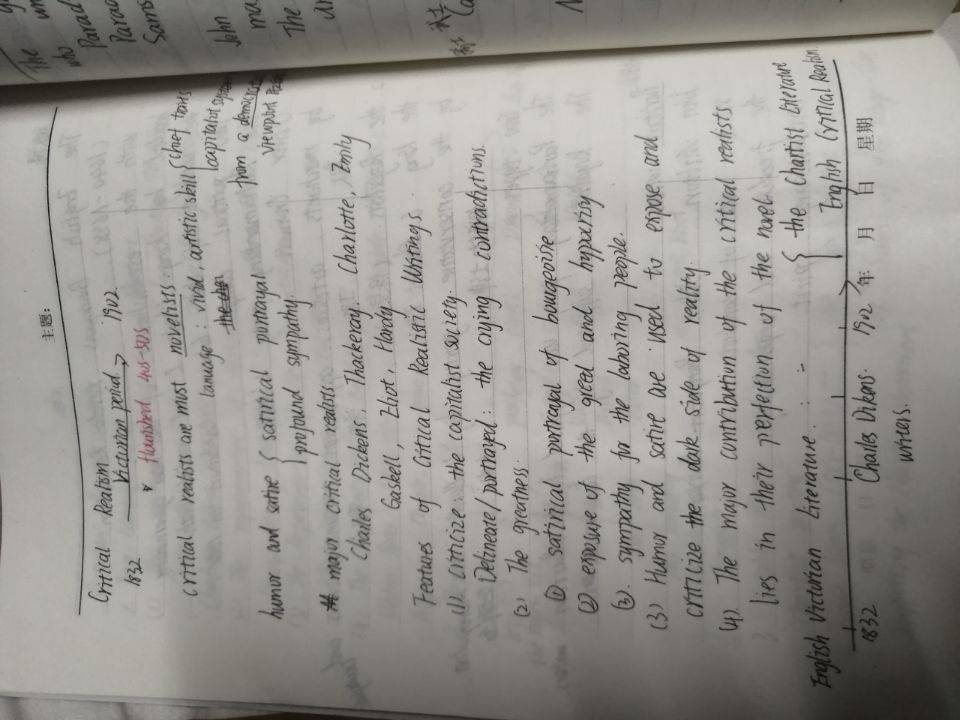 主题:
Critical Realism
1832 Victorian period → 1902.
flourished 40s-50s
critical realists are most novelists.
language: vivid, artistic skill { chief traits
capitalist system
from a democratic
viewpoint
humor and satire { satirical portrayal
profound sympathy
major critical realists
Charles Dickens, Thackeray, Charlotte, Emily
Gaskell, Eliot, Hardy
Features of Critical Realistic Writings
(1). Criticize: the capitalist society.
Delineate/portrayed: the crying contradictions.
(2) The greatness:
① satirical portrayal of bourgeoisie
② exposure of the greed and hypocrisy
③. sympathy for the laboring people.
(3) Humor and satire are used to expose and
criticize the dark side of reality.
(4). The major contribution of the critical realists
lies in their perfection of the novel.
English Victorian Literature: { the Chartist Literature
English Critical Realism
1832 Charles Dikens. 1902
writers.
年 月 日 星期
The
who
Parad
Sams
John
The